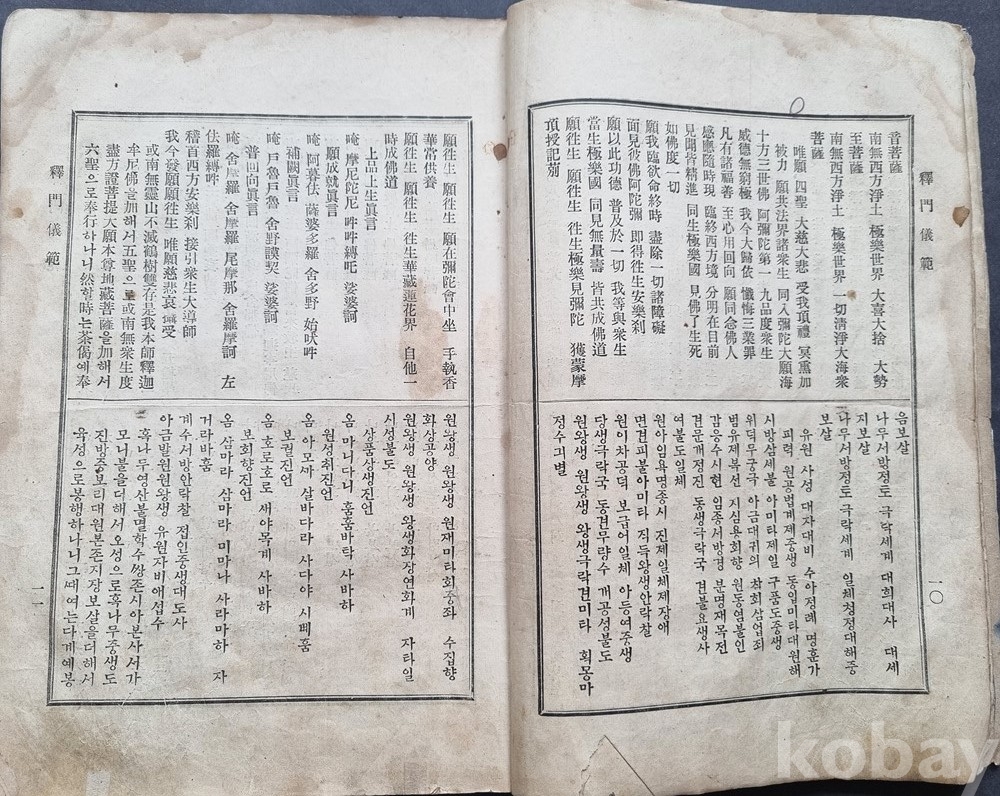 釋門儀範
音菩薩
南無西方淨土 極樂世界 大喜大捨 大勢
至菩薩
南無西方淨土 極樂世界 一切淸淨大海衆
菩薩
唯願 四聖 大慈大悲 受我頂禮 冥熏加
被力 願共法界諸衆生 同入彌陀大願海
十方三世佛 阿彌陀第一 九品度衆生
威德無窮極 我今大歸依 懺悔三業罪
凡有諸福善 至心用回向 願同念佛人
感應隨時現 臨終西方境 分明在目前
見聞皆精進 同生極樂國 見佛了生死
如佛度一切
願我臨欲命終時 盡除一切諸障礙
面見彼佛阿彌陀 即得徃生安樂刹
願以此功德 普及於一切 我等與衆生
當生極樂國 同見無量壽 皆共成佛道
願徃生 願徃生 徃生極樂見彌陀 獲蒙摩
頂授記莂
음보살
나무서방정토 극락세계 대희대사 대세
지보살
나무서방정토 극락세계 일체청정대해중
보살
유원 사성 대자대비 수아정례 명훈가
피력 원공법계제중생 동입미타대원해
시방삼세불 아미타제일 구품도중생
위덕무궁극 아금대귀의 참회삼업죄
범유제복선 지심용회향 원동염불인
감응수시현 임종서방경 분명재목전
견문개정진 동생극락국 견불요생사
여불도일체
원아임욕명종시 진제일체제장애
면견피불아미타 직득왕생안락찰
원이차공덕 보급어일체 아등여중생
당생극락국 동견무량수 개공성불도
원왕생 원왕생 왕생극락견미타 획몽마
정수긔별
一〇
釋門儀範
願徃生 願徃生 願在彌陀會中坐 手執香
華常供養
願徃生 願徃生 徃生華藏蓮花界 自他一
時成佛道
上品上生眞言
唵 摩尼陀尼 吽吽縛吒 娑婆訶
願成就眞言
唵 阿暮佉 薩婆多羅 舍多野 始吠吽
補闕眞言
唵 戶魯戶魯 舍野謨契 娑婆訶
普回向眞言
唵 舍摩羅 舍摩羅 尾摩那 舍羅摩訶 左
佉羅縛吽
稽首西方安樂刹 接引衆生大導師
我今發願願徃生 唯願慈悲哀攝受
或南無靈山不滅鶴樹雙存是我本師釋迦
牟尼佛을加해서五聖으로或南無衆生度
盡方證菩提大願本尊地藏菩薩을加해서
六聖으로奉行하나니然할時는茶偈예奉
원왕생 원왕생 원재미타회중좌 수집향
화상공양
원왕생 원왕생 왕생화장연화계 자타일
시성불도
상품상생진언
옴 마니다니 훔훔바탁 사바하
원성취진언
옴 아모까 살바다라 사다야 시베훔
보궐진언
옴 호로호로 새야목계 사바하
보회향진언
옴 삼마라 삼마라 미마나 사라마하 자
거라바훔
계수서방안락찰 접인중생대도사
아금발원원왕생 유원자비애섭수
혹나무영산불멸학수쌍존시아본사서가
모니불을더해서오성으로혹나무중생도
진방증보리대원본존지장보살을더해서
육성으로봉행하나니그때여는다게예봉
一一
kobay